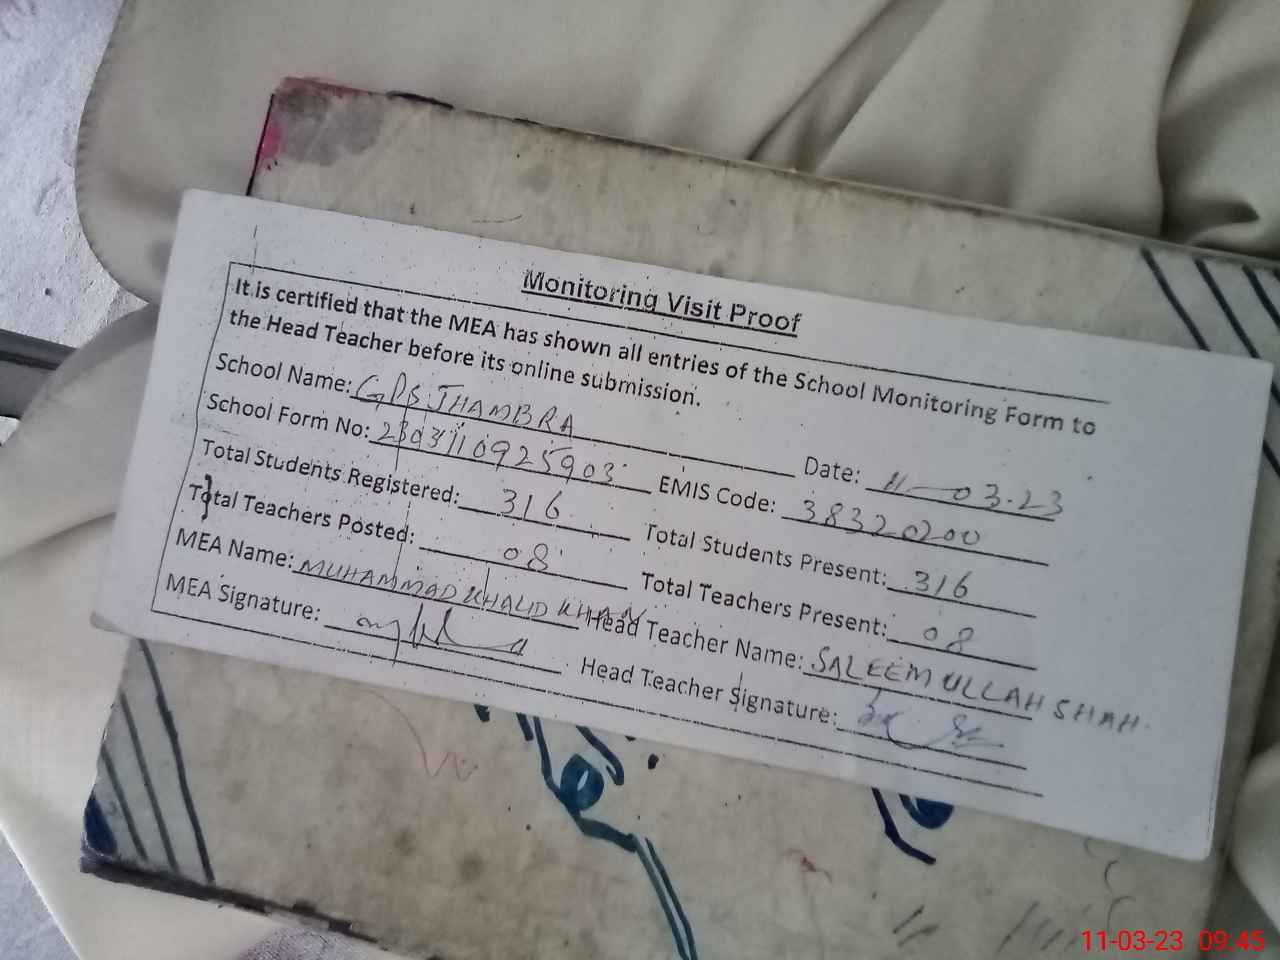 Monitoring Visit Proof
It is certified that the MEA has shown all entries of the School Monitoring Form to
the Head Teacher before its online submission.
School Name: GPS JHAMBRA Date: 11-03-23
School Form No: 2303110925903 EMIS Code: 38320200
Total Students Registered: 316 Total Students Present: 316
Total Teachers Posted: 08 Total Teachers Present: 08
MEA Name: MUHAMMAD KHALID KHAN Head Teacher Name: SALEEM ULLAH SHAH
MEA Signature: Head Teacher Signature:
11-03-23 09:45